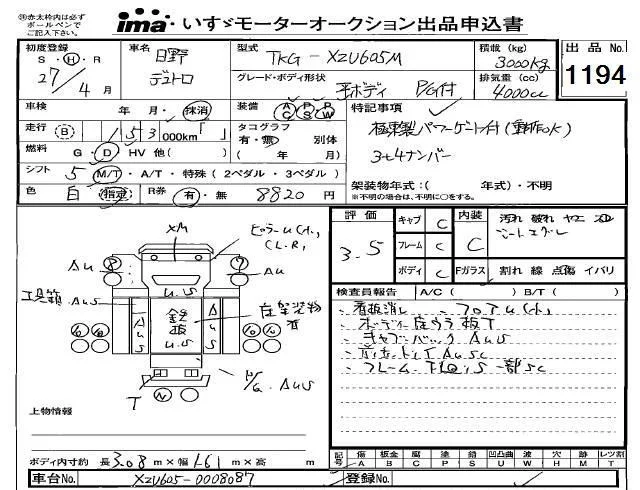 ※赤太枠内は必ず
ボールペンで
ご記入下さい。
ima いすゞモーターオークション出品申込書
初度登録 S・H・R 27年 4月
車名 日野 デュトロ
型式 TKG-XZU605M
グレード・ボディ形状 平ボディ P/G付
積載 (kg) 3000kg
排気量 (cc) 4000cc
出品No. 1194
車検 年 月・抹消
装備 A/C P/S P/W
走行 (B) 153 000km「 」
タコグラフ 有・無 別体 ( 年 月)
燃料 G・D HV 他( )
シフト 5 M/T・A/T・特殊 (2ペダル・3ペダル)
色 白 (指定) R券 有・無 8820 円
特記事項
極東製パワーゲート付(動作OK)
3t4ナンバー
架装物年式:( 年式)・不明
※不明の場合は、不明に○をする。
評価 3.5
キャブ C
フレーム C
ボディ C
内装 C
汚れ 破れ ヤニ スレ
シートコゲ
Fガラス 割れ 線 点傷 イバリ
検査員報告 A/C ( ) B/T ( )
・看板消し フロアU(小)
・ボディー
・キャブバック AUS
・フレーム 下回りS 一部SC
XM
ピラーU(小)
(L.R)
AU
AU
工具箱 AUS
AUS
AUS
U.S
鉄板
U.S
T
N
P/G AUS
上物情報
ボディ内寸約 長 3.08 m×幅 1.61 m×高 m
記号 傷 A 板金 B 腐 C 塗 P 錆 S 凹凸曲 U 波 W 穴 H 欠 M レンズ割 T
車台No. XZU605-0008087
登録No.